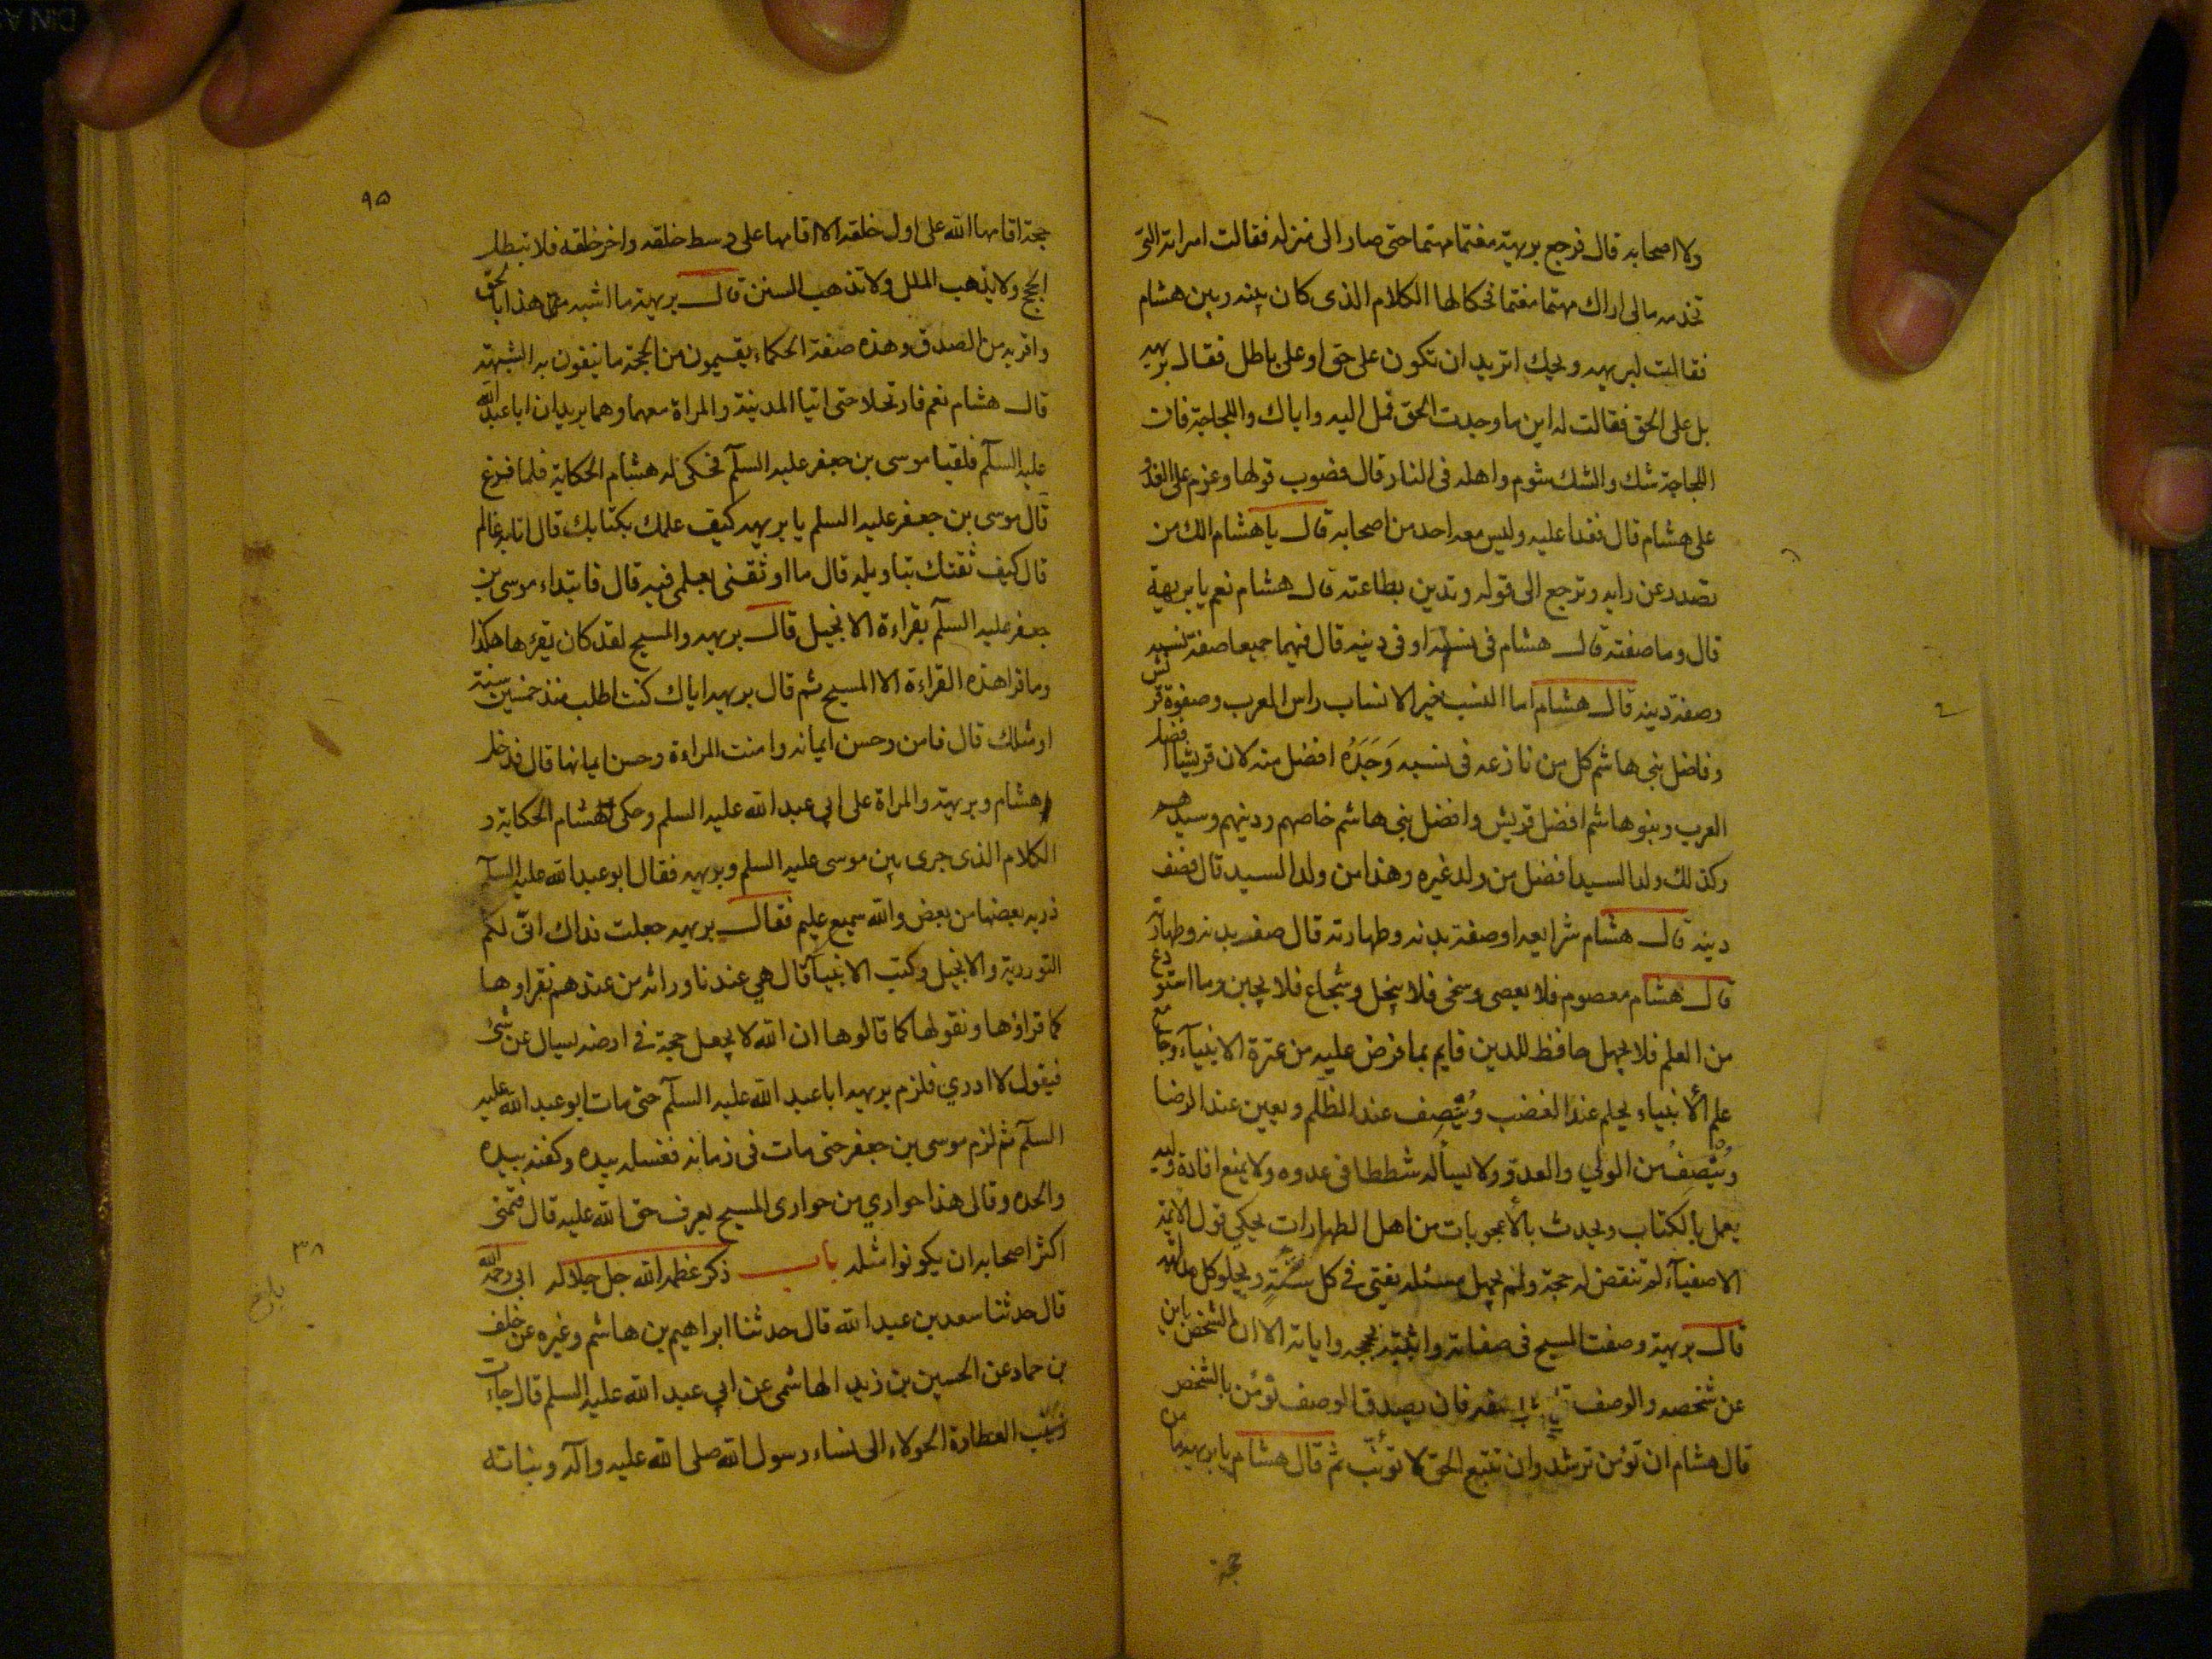 ولا اصحابه قال فرجع بريهة مغتما مهتما حتى صار الى منزله فقالت امراته التى
تخدمه مالى اراك مهتما مغتما فحكا لها الكلام الذى كان بينه وبين هشام
فقالت لبريهه ويحك اتريد ان تكون على حق او على باطل فقال بريهه
بل على الحق فقالت له اين ما وجدت الحق فمل اليه واياك واللجاجة فان
اللجاجة شك والشك شوم واهله فى النار قال فصوب قولها وعزم على الغدو
على هشام قال فغدا عليه وليس معه احد من اصحابه قال يا هشام الك من
تصدر عن رايه وترجع الى قوله وتدين بطاعته قال هشام نعم يا بريهة
قال وما صفته قال هشام فى نسبه او فى دينه قال فيهما جميعا صفة نسبه
وصفة دينه قال هشام اما النسب خير الانساب راس العرب وصفوة قريش
وفاضل بنى هاشم كل من نازعه فى نسبه وجده افضل منه لان قريشا افضل
العرب وبنو هاشم افضل قريش وافضل بنى هاشم خاصهم ودينهم وسيدهم
وكذلك ولد السيد افضل من ولد غيره وهذا من ولد السيد قال فصف
دينه قال هشام شرايعه او صفة بدنه وطهارته قال صفة بدنه وطهارته
قال هشام معصوم فلا يعصى وسخى فلا يبخل وشجاع فلا يجبن وما استودع
من العلم فلا يجهل حافظ للدين قايم بما فرض عليه من عترة الانبيآء وجامع
علم الأنبياء يحلم عند الغضب وينصف عند الظلم ويعين عند الرضا
وينصف من الولي والعدو ولا يسأله شططا فى عدوه ولا يمنع افادة وليه
يعمل بالكتاب ويحدث بالأعجوبات من اهل الطهارات يحكي قول الائمة
الاصفيآء لم تنقض له حجة ولم يجهل مسئله يفتى في كل سنة ويجلو كل مدلهمة
قال بريهة وصفت المسيح فى صفاته واثبته بحججه واياته الا ان الشخص باين
عن شخصه والوصف فان يصدق الوصف نؤمن بالشخص
قال هشام ان تؤمن ترشد وان تتبع الحق لا تؤنب ثم قال هشام يا بريهه ما من
حجة
٩٥
حجة اقامها الله على اول خلقه الا اقامها على وسط خلقه واخر خلقه فلا تبطل
الحجج ولا يذهب الملل ولا تذهب السنن قال بريهة ما اشبه هذا بالحق
واقربه من الصدق وهذه صفة الحكماء يقيمون من الحجة ما ينفون به الشبهة
قال هشام نعم فارتحلا حتى اتيا المدينة والمراة معهما وهما يريدان ابا عبد الله
عليه السلم فلقيا موسى بن جعفر عليه السلم فحكى له هشام الحكاية فلما فرغ
قال موسى بن جعفر عليه السلم يا بريهه كيف علمك بكتابك قال انا به عالم
قال كيف ثقتك بتاويله قال ما اوثقنى بعلمى فيه قال فابتداء موسى بن
جعفر عليه السلم بقراءة الانجيل قال بريهه والمسيح لقد كان يقرها هكذا
وما قرا هذه القراءة الا المسيح ثم قال بريهه اياك كنت اطلب منذ خمسين سنة
او مثلك قال فامن وحسن ايمانه وامنت المراءة وحسن ايمانها قال فدخل
هشام وبريهة والمراة على ابي عبد الله عليه السلم وحكى هشام الحكاية و
الكلام الذى جرى بين موسى عليه السلم وبريهه فقال ابو عبد الله عليه السلم
ذريه بعضها من بعض والله سميع عليم فقال بريهه جعلت فداك انى لكم
التوردية والانجيل وكتب الانبيآ قال هي عندنا وراثه من عندهم نقراوها
كما قراوها ونقولها كما قالوها ان الله لا يجعل حجة فى ارضه يسال عن شئ
فيقول لا ادري فلزم بريهه ابا عبد الله عليه السلم حتى مات ابو عبد الله عليه
السلم ثم لزم موسى بن جعفر حتى مات فى زمانه فغسله بيده وكفنه بيده
والحده وقال هذا حواري من حوارى المسيح يعرف حق الله عليه قال فتمنى
اكثر اصحابه ان يكونوا مثله باب ذكر عظمة الله جل جلاله ابى رحمه الله
٣٨
قال حدثنا سعد بن عبد الله قال حدثنا ابراهيم بن هاشم وغيره عن خلف
بن حماد عن الحسين بن زيد الهاشمى عن ابي عبد الله عليه السلم قال جاءت
زينب العطارة الحولاء الى نساء رسول الله صلى الله عليه وآله وبناته